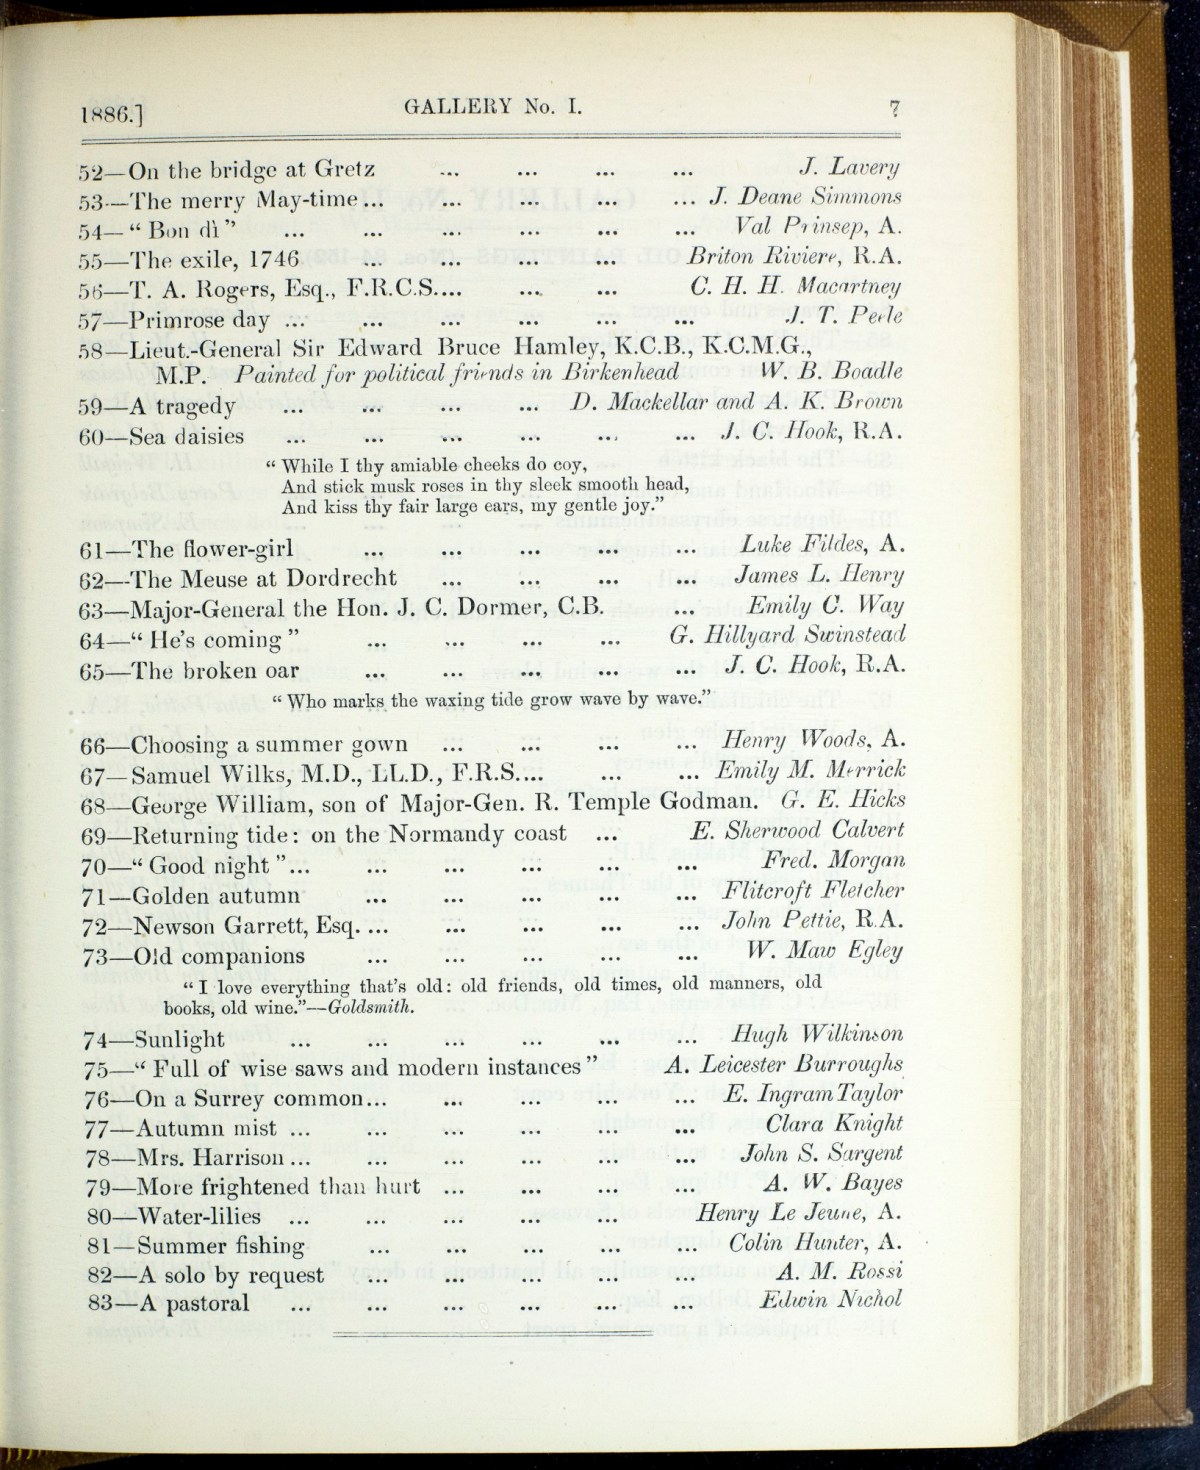 1886.] GALLERY No. I. 7
52—On the bridge at Gretz ... ... ... ... J. Lavery
53—The merry May-time... ... ... ... ... J. Deane Simmons
54—“ Bon dì ” ... ... ... ... ... ... Val Prinsep, A.
55—The exile, 1746 ... ... ... ... Briton Riviere, R.A.
56—T. A. Rogers, Esq., F.R.C.S.... ... ... C. H. H. Macartney
57—Primrose day ... ... ... ... ... ... J. T. Peele
58—Lieut.-General Sir Edward Bruce Hamley, K.C.B., K.C.M.G.,
M.P. Painted for political friends in Birkenhead W. B. Boadle
59—A tragedy ... ... ... ... D. Mackellar and A. K. Brown
60—Sea daisies ... ... ... ... ... ... J. C. Hook, R.A.
“ While I thy amiable cheeks do coy,
And stick musk roses in thy sleek smooth head,
And kiss thy fair large ears, my gentle joy.”
61—The flower-girl ... ... ... ... ... Luke Fildes, A.
62—The Meuse at Dordrecht ... ... ... ... James L. Henry
63—Major-General the Hon. J. C. Dormer, C.B. ... Emily C. Way
64—“ He’s coming ” ... ... ... ... G. Hillyard Swinstead
65—The broken oar ... ... ... ... ... J. C. Hook, R.A.
“ Who marks the waxing tide grow wave by wave.”
66—Choosing a summer gown ... ... ... ... Henry Woods, A.
67—Samuel Wilks, M.D., LL.D., F.R.S.... ... ... Emily M. Merrick
68—George William, son of Major-Gen. R. Temple Godman. G. E. Hicks
69—Returning tide: on the Normandy coast ... E. Sherwood Calvert
70—“ Good night ”... ... ... ... ... ... Fred. Morgan
71—Golden autumn ... ... ... ... ... Flitcroft Fletcher
72—Newson Garrett, Esq. ... ... ... ... ... John Pettie, R.A.
73—Old companions ... ... ... ... ... W. Maw Egley
“ I love everything that’s old: old friends, old times, old manners, old
books, old wine.”—Goldsmith.
74—Sunlight ... ... ... ... ... ... Hugh Wilkinson
75—“ Full of wise saws and modern instances ” A. Leicester Burroughs
76—On a Surrey common... ... ... ... ... E. Ingram Taylor
77—Autumn mist ... ... ... ... ... ... Clara Knight
78—Mrs. Harrison ... ... ... ... ... ... John S. Sargent
79—More frightened than hurt ... ... ... ... A. W. Bayes
80—Water-lilies ... ... ... ... ... Henry Le Jeune, A.
81—Summer fishing ... ... ... ... ... Colin Hunter, A.
82—A solo by request ... ... ... ... ... A. M. Rossi
83—A pastoral ... ... ... ... ... ... Edwin Nichol